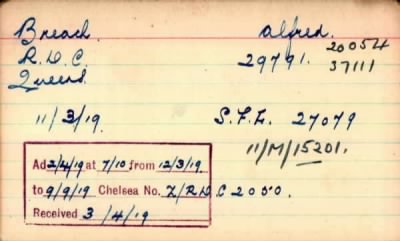 Breach. Alfred.
R.D.C. 29791. 20054
Queens 37111
11/3/19. S.F.L. 27079
11/M/15201.
Ad 2/4/19 at 7/10 from 12/3/19
to 9/9/19 Chelsea No. Z/R.D.C 2050.
Received 3/4/19